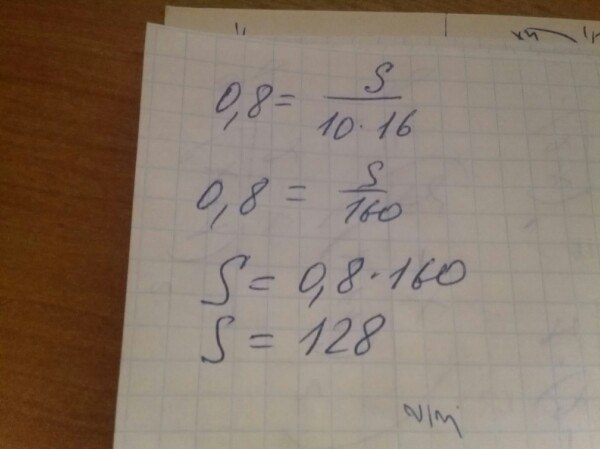 0,8 = S / 10 · 16
0,8 = S / 160
S = 0,8 · 160
S = 128